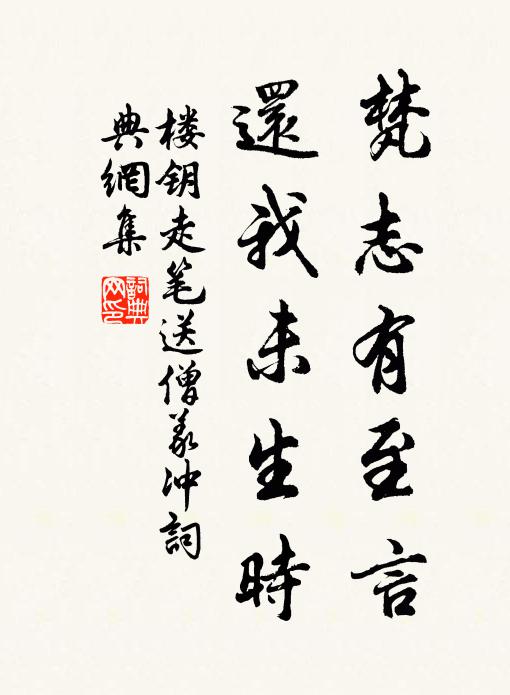 梵志有至言
還我未生時
楼钥走笔送僧義冲詞
典網集
詞典
网印